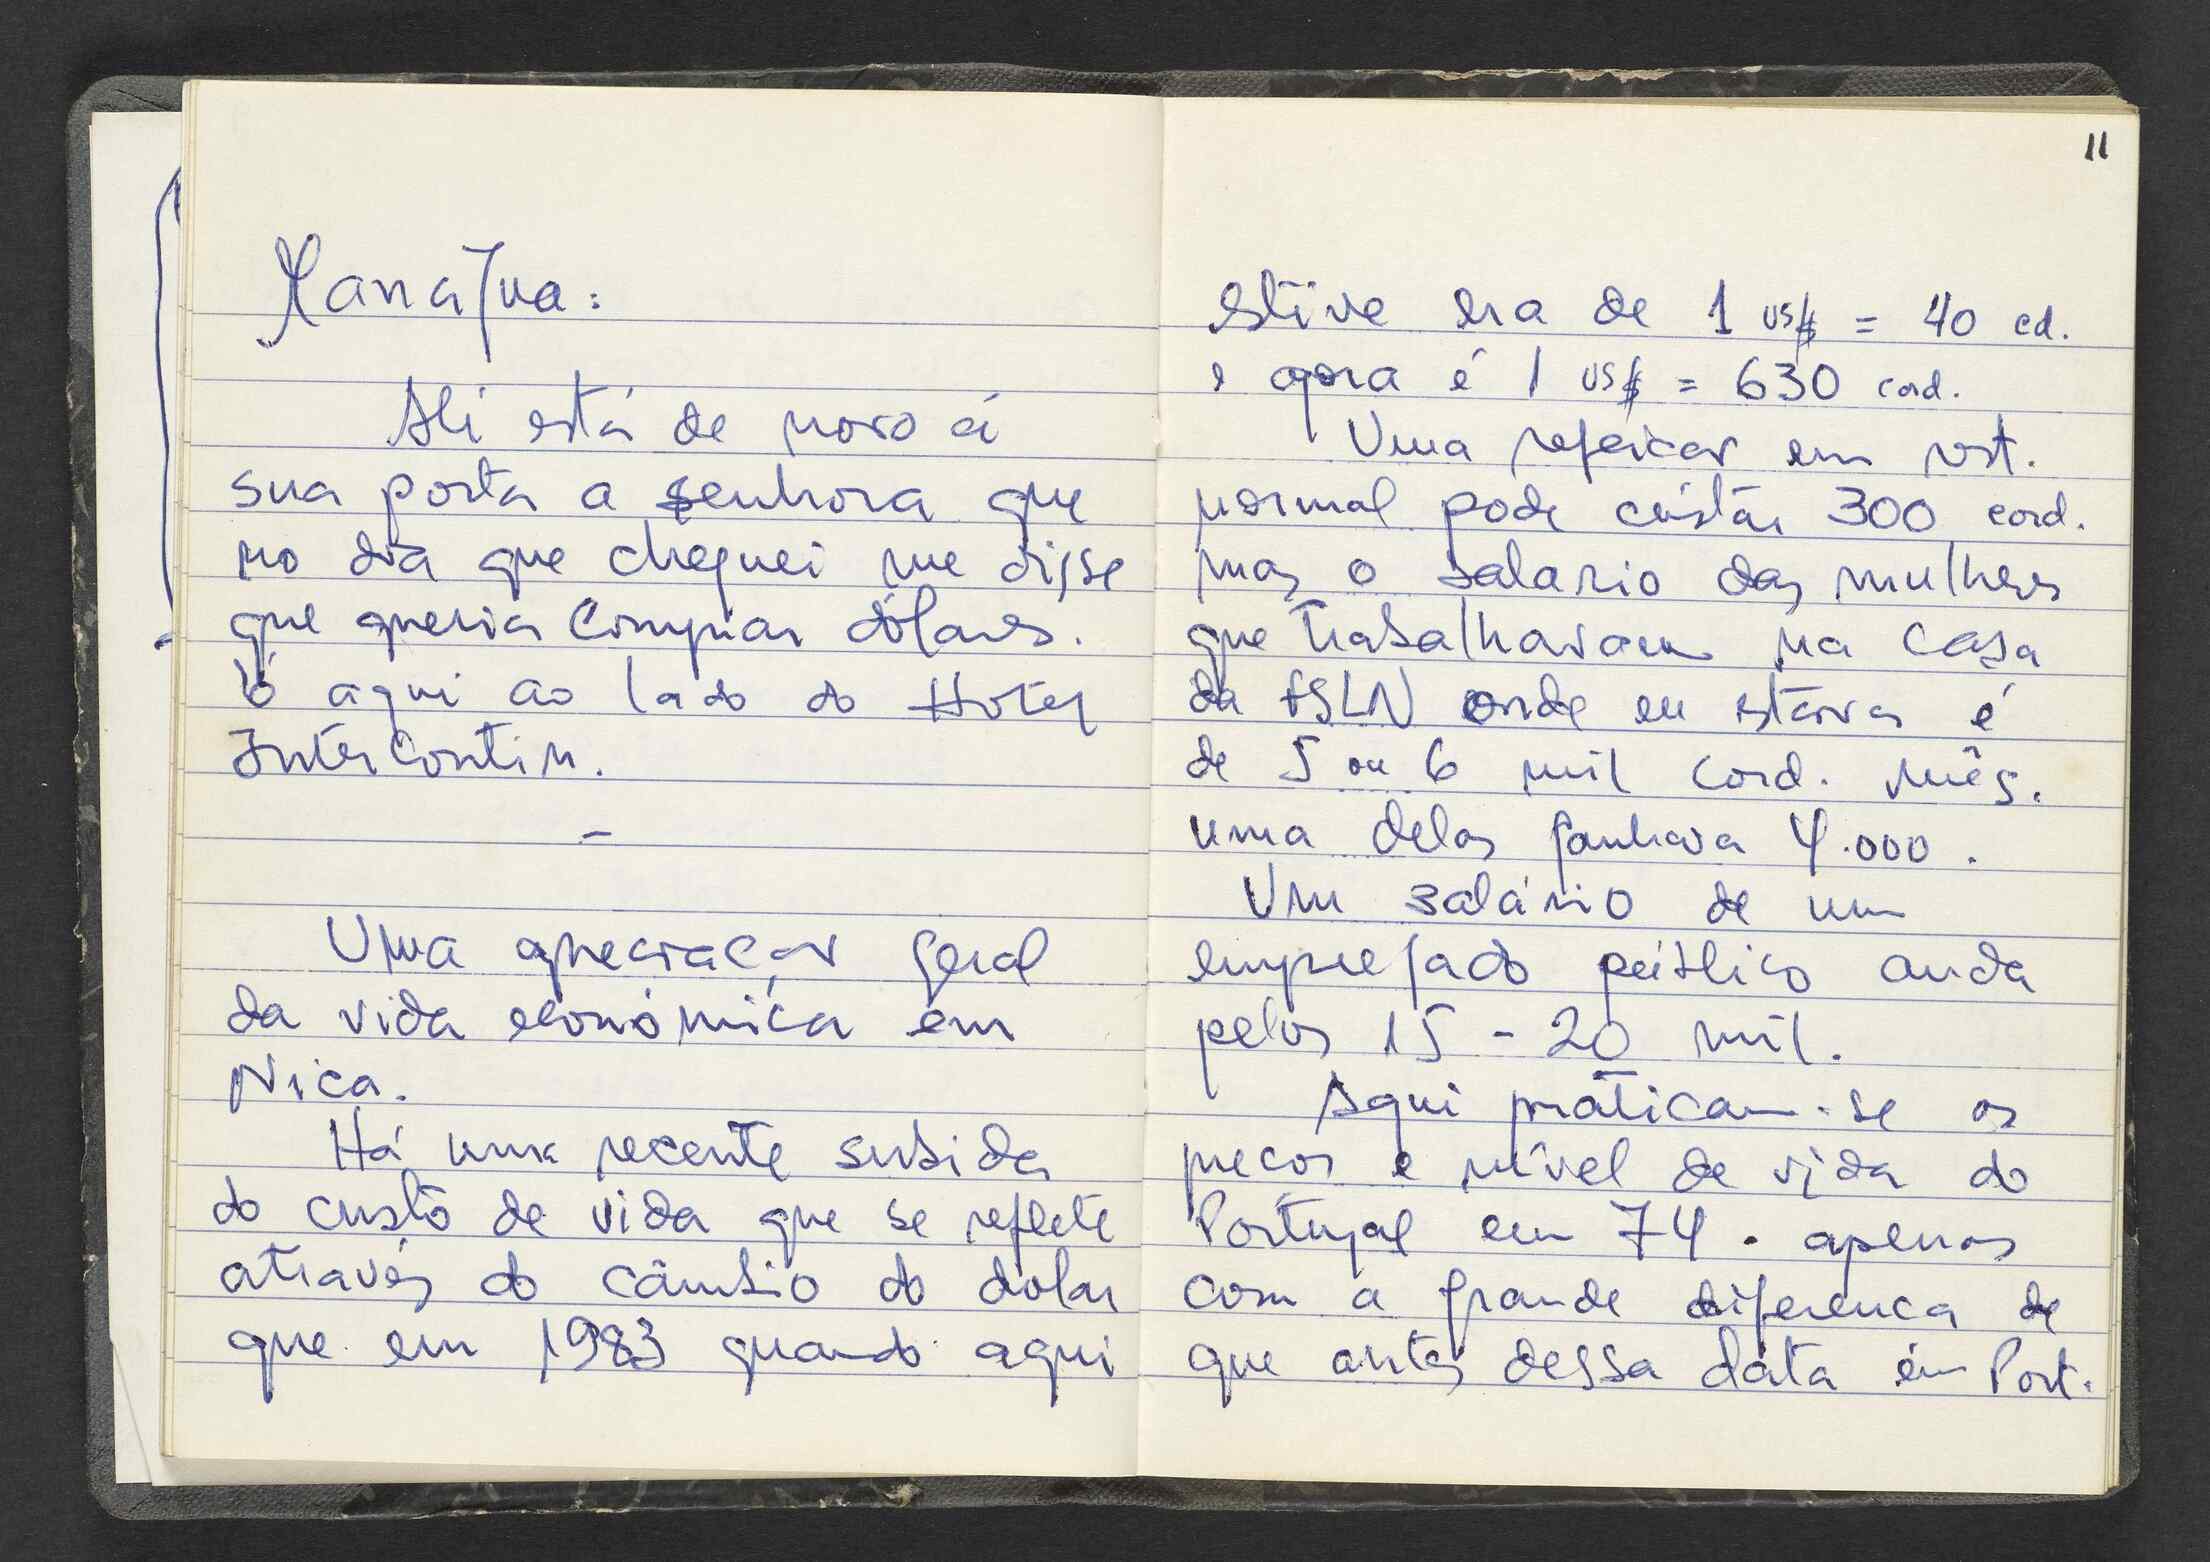 Managua:
Ali está de novo á
sua porta a senhora que
no dia que cheguei me disse
que queria comprar dólares.
É aqui ao lado do Hotel
Intercontin.
-
Uma apreciacão geral
da vida económica em
Nica.
Há uma recente subida
do custo de vida que se reflete
através do câmbio do dolar
que em 1983 quando aqui
11
estive era de 1 US$ = 40 cd.
e agora é 1 US$ = 630 cord.
Uma refeicão em rest.
normal pode custar 300 cord.
mas o salario das mulheres
que trabalhavam na casa
da FSLN onde eu estava é
de 5 ou 6 mil cord. mês.
uma delas ganhava 4.000.
Um salário de um
empregado público anda
pelos 15 - 20 mil.
Aqui praticam-se os
precos e nível de vida do
Portugal em 74. apenas
com a grande diferenca de
que antes dessa data em Port.